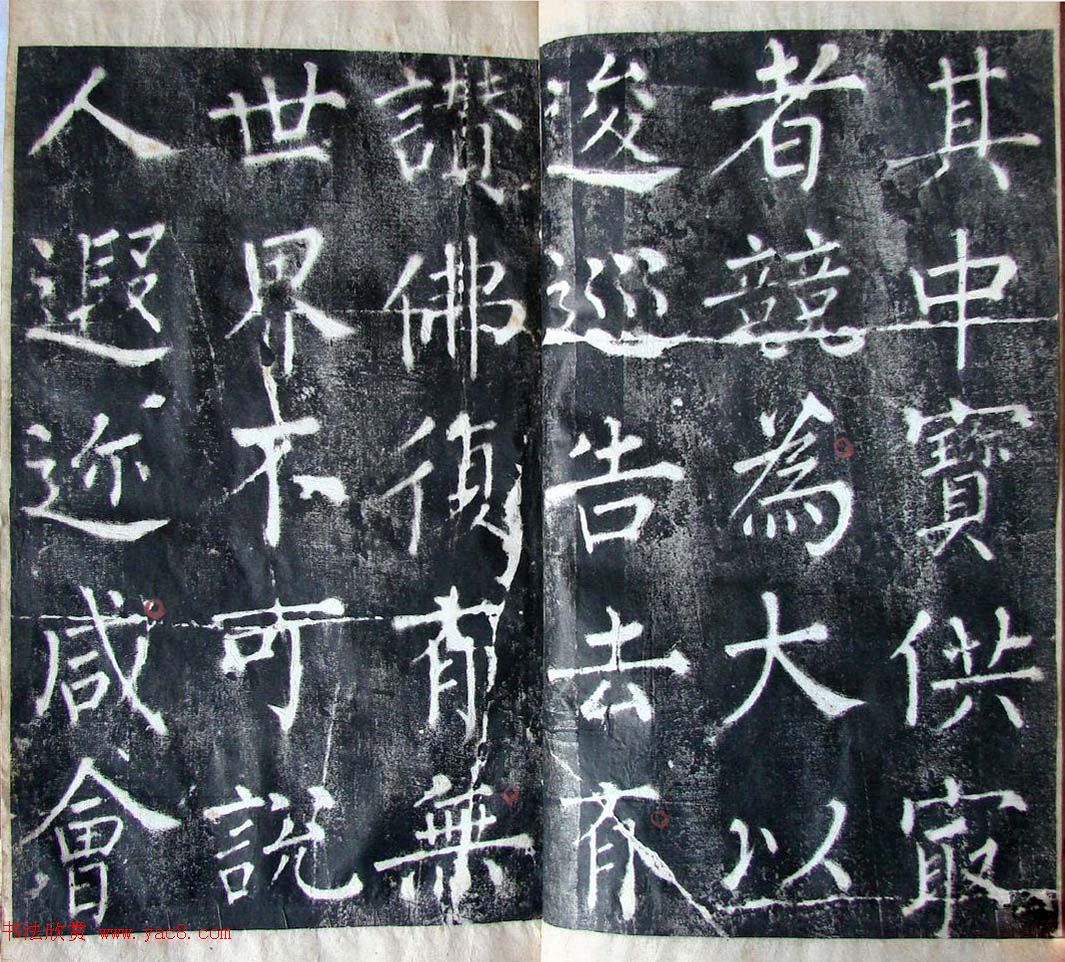 其中寶供㝡
者競為大以
逡巡告去有
讃佛復有無
世界不可說
人遐迩咸會
书法欣赏 www.yac8.com